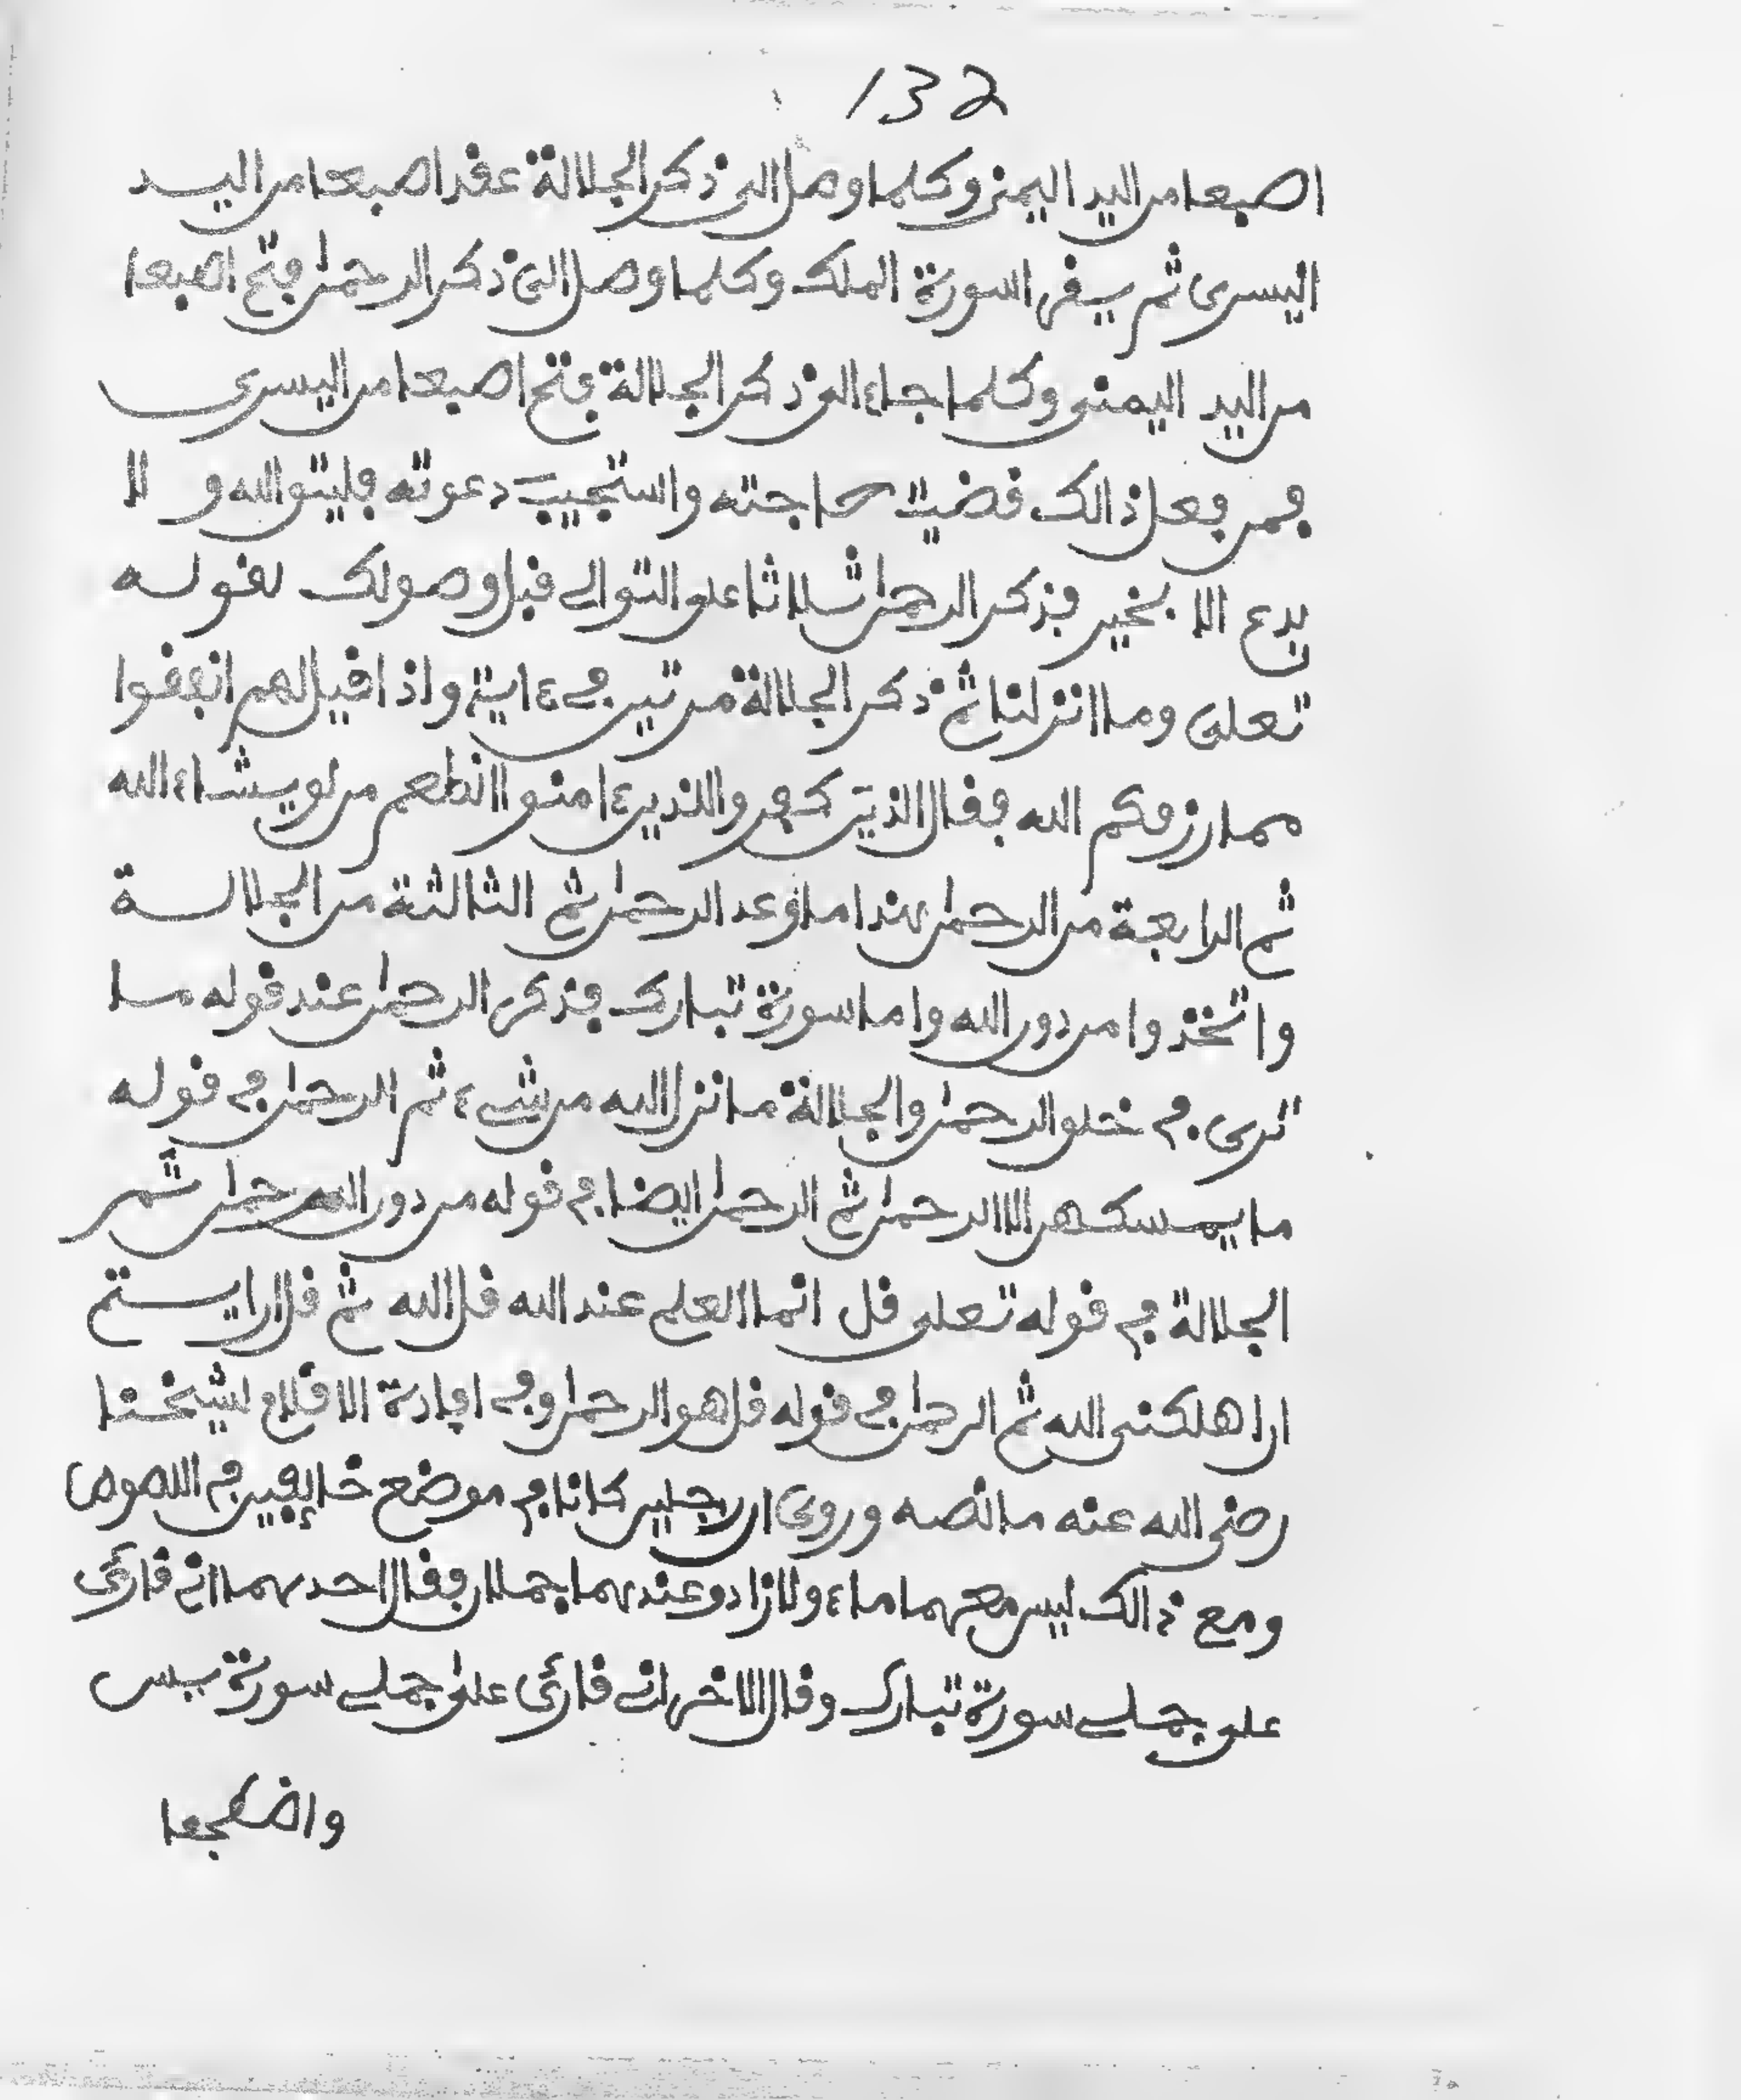 132
اصبعا من اليد اليمنى وكلما وصل الى ذكر الجلالة عقد اصبعا من اليد
اليسرى ثم يقرا سورة الملك وكلما وصل الى ذكر الرحمن فتح اصبعا
من اليد اليمنى وكلما جاء الى ذكر الجلالة فتح اصبعا من اليسرى
فمن فعل ذالك قضيت حاجته واستجيبت دعوته فليتق الله و لا
يدع الا بخير فذكر الرحمن ثلاثا على التوالي قبل وصولك لقوله
تعلى وما انزلنا ثم ذكر الجلالة مرتين في ءاية واذا قيل لهم انفقوا
مما رزقكم الله فقال الذين كفروا للذين ءامنوا انطعم من لو يشاء الله
ثم الرابعة من الرحمن هذا ما وعد الرحمن ثم الثالثة من الجلالة
واتخذوا من دون الله واما سورة تبارك فذكر الرحمن عند قوله ما
ترى في خلق الرحمن والجلالة ما نزل الله من شيء ثم الرحمن في قوله
ما يمسكهن الا الرحمن ثم الرحمن ايضا في قوله من دون الرحمن ثم
الجلالة في قوله تعلى قل انما العلم عند الله قل الله ثم قل ارايتم
ان اهلكنى الله ثم الرحمن في قوله قل هو الرحمن وفي افادة الاقلام لشيخنا
رضى الله عنه ما نصه وروى ان رجلين كانا في موضع خايفين من اللصوص
ومع ذالك ليس معهما ماء ولا زاد وعندهما جملان فقال احدهما اني قارئ
على جملي سورة تبارك وقال الاخر اني قارئ على جملي سورة يس
واضطجعا